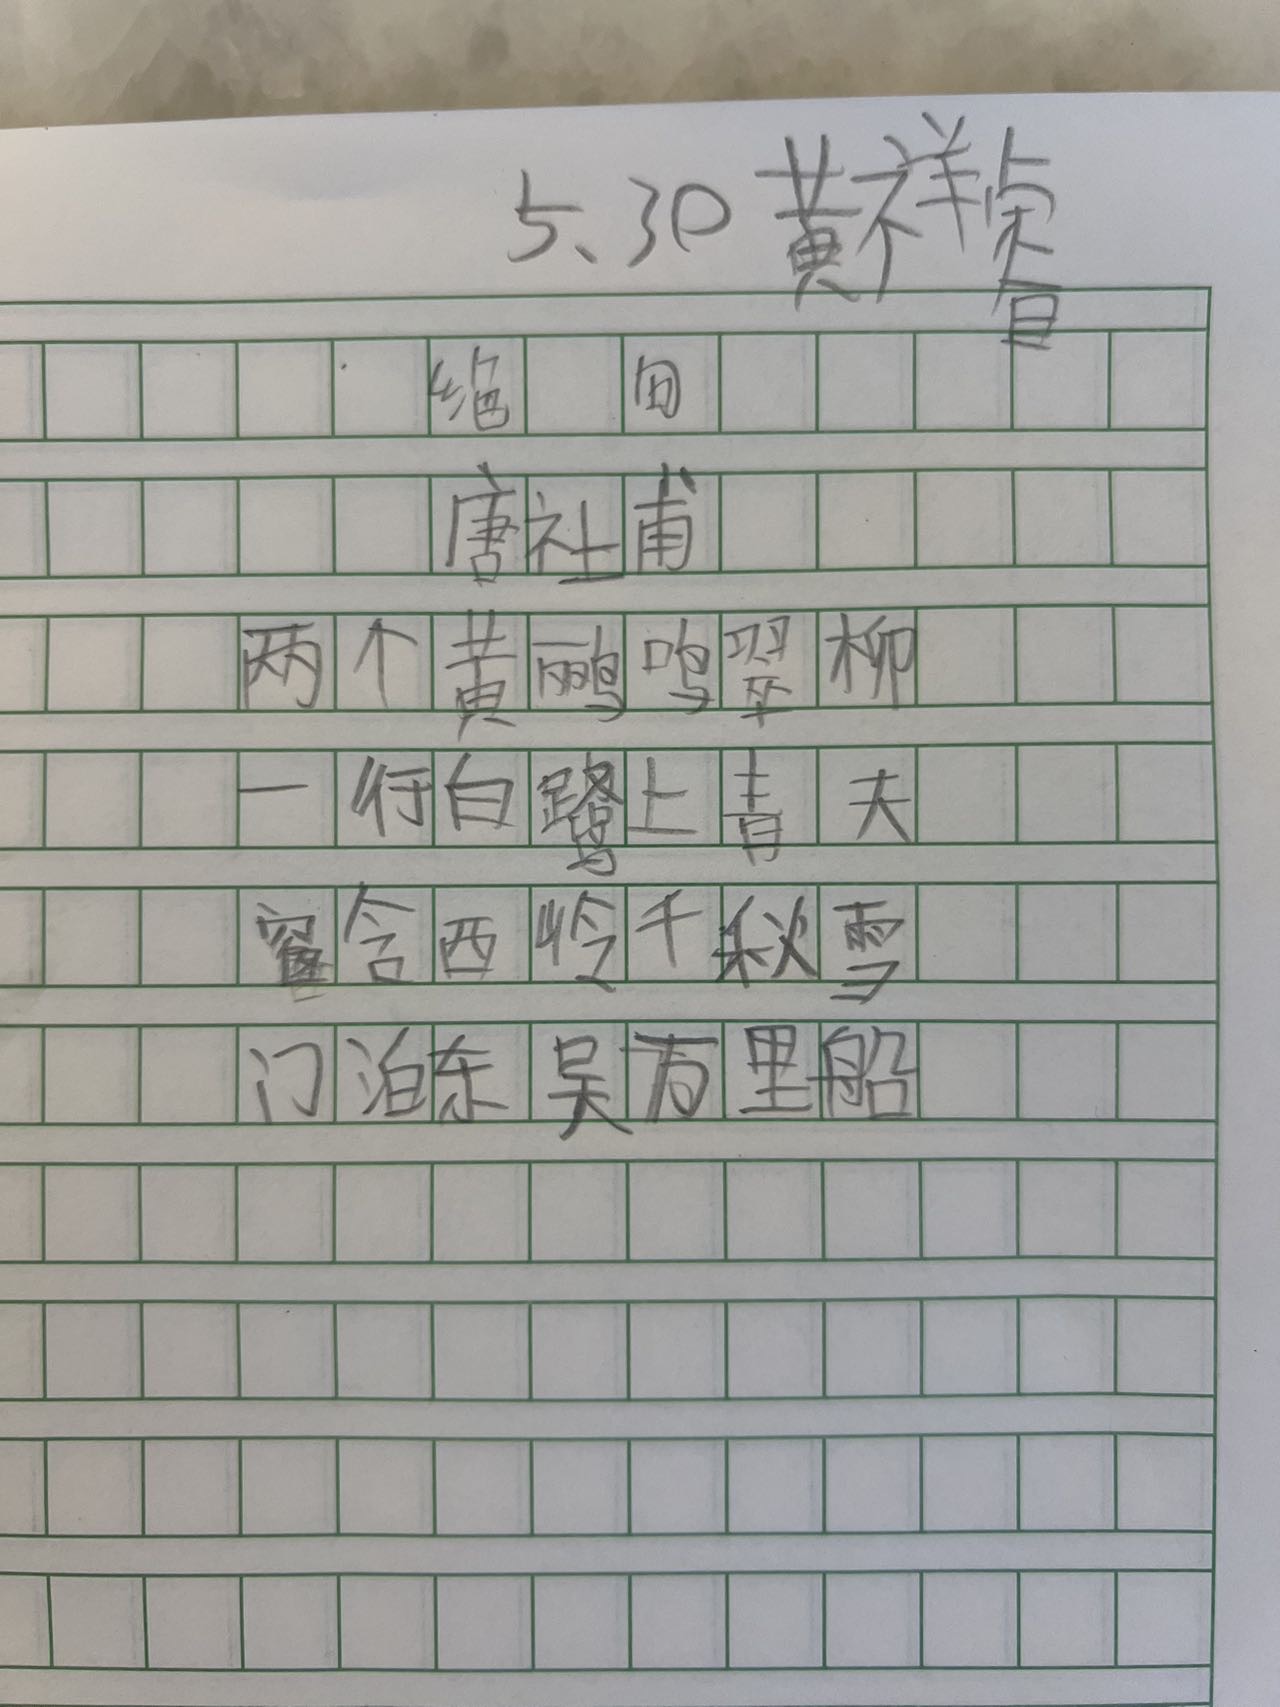 5.30 黄祥
绝句
唐社甫
两个黄鹂鸣翠柳
一行白鹭上青天
窗含西岭千秋雪
门泊东吴万里船